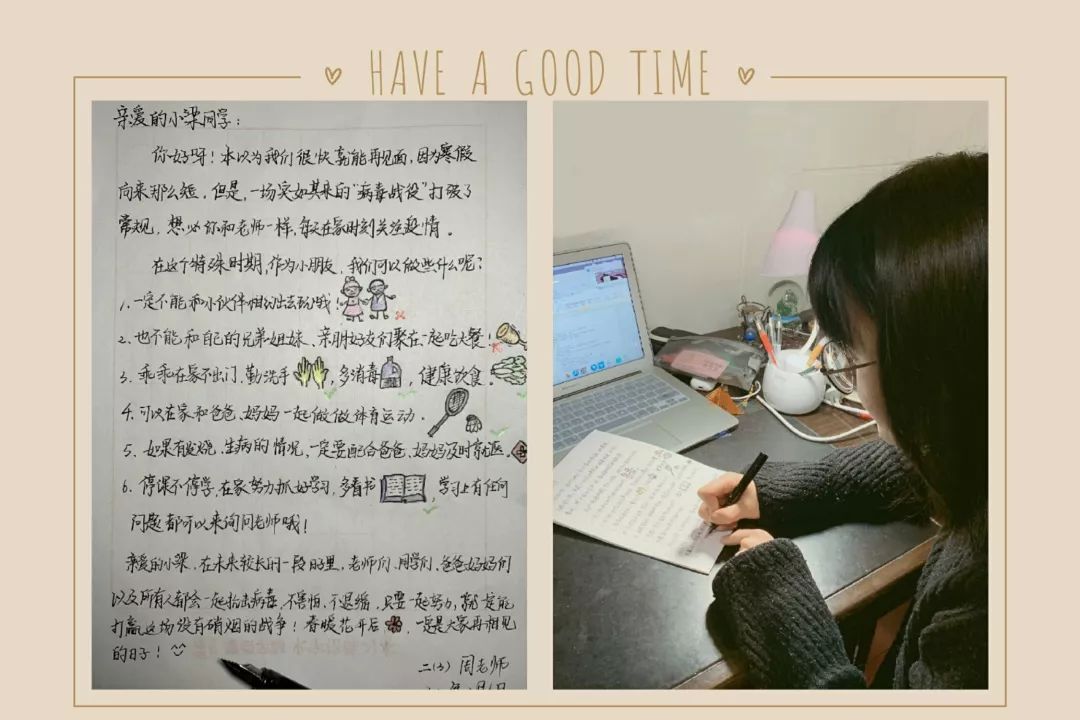 HAVE A GOOD TIME
亲爱的小梁同学：
你好呀！本以为我们很快就能再见面，因为寒假
向来那么短，但是，一场突如其来的“病毒战役”打破了
常规，想必你和老师一样，每天在家时刻关注疫情。
在这个特殊时期，作为小朋友，我们可以做些什么呢？
1、一定不能和小伙伴相约出去玩哦！
2、也不能和自己的兄弟姐妹、亲朋好友们聚在一起吃大餐！
3、乖乖在家不出门，勤洗手，多消毒，健康饮食。
4、可以在家和爸爸、妈妈一起做做体育运动．
5、如果有发烧、生病的情况，一定要配合爸爸、妈妈及时就医。
6、停课不停学，在家努力抓好学习，多看书，学习上有任何
问题都可以来询问老师哦！
亲爱的小梁，在未来较长的一段时间里，老师们、同学们、爸爸妈妈们
以及所有人都会一起抗击病毒，不害怕，不退缩，只要一起努力，就一定能
打赢这场没有硝烟的战争！春暖花开后，一定是大家再相见
的日子！
二（3）周老师